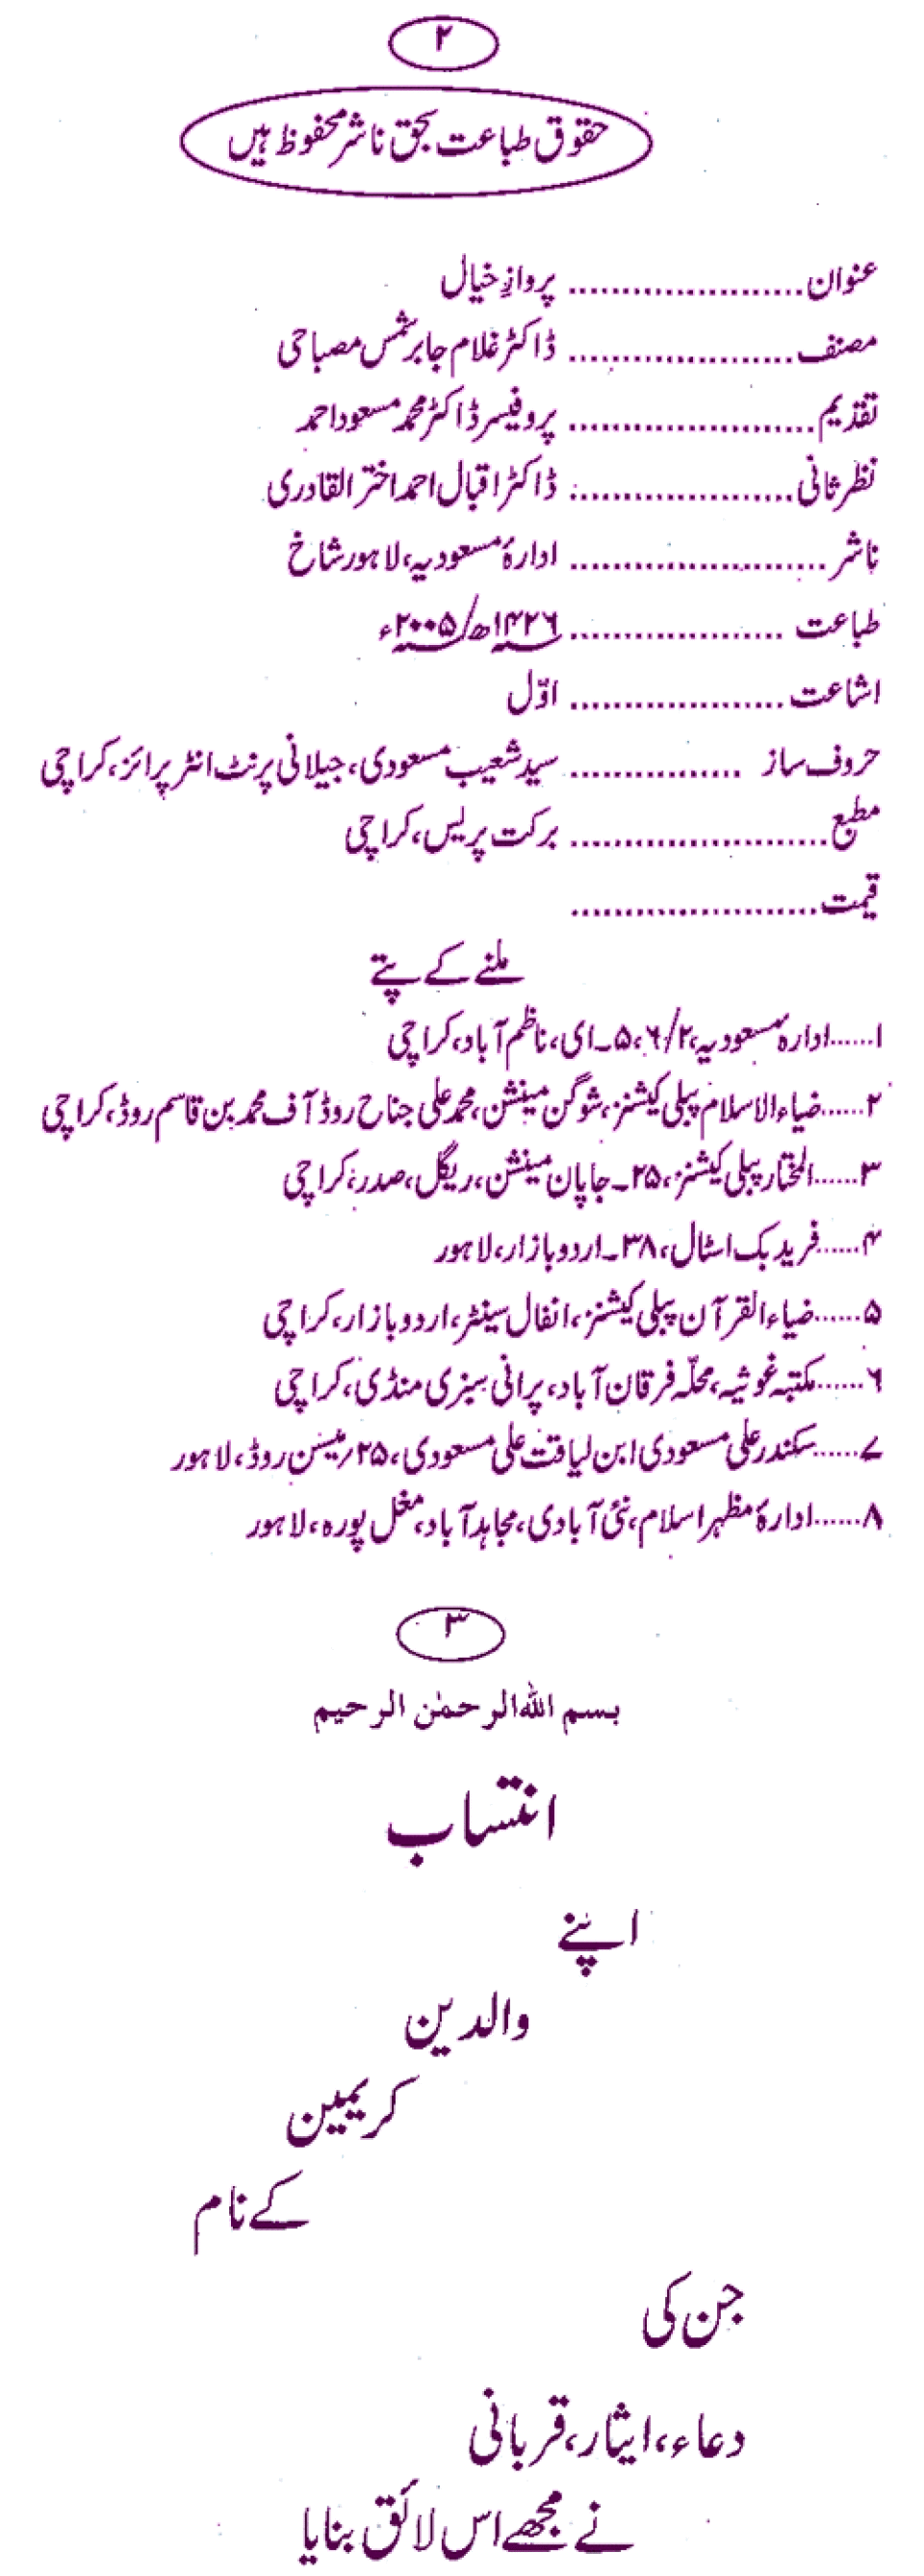 ۲
حقوق طباعت بحق ناشر محفوظ ہیں
عنوان ...................... پروازِ خیال
مصنف ...................... ڈاکٹر غلام جابر شمس مصباحی
تقدیم ...................... پروفیسر ڈاکٹر محمد مسعود احمد
نظر ثانی ...................... ڈاکٹر اقبال احمد اختر القادری
ناشر ...................... ادارۂ مسعودیہ، لاہور شاخ
طباعت ...................... ۱۴۲۶ھ/۲۰۰۵ء
اشاعت ...................... اوّل
حروف ساز ................ سید شعیب مسعودی، جیلانی پرنٹ انٹر پرائز، کراچی
مطبع ...................... برکت پریس، کراچی
قیمت ......................
ملنے کے پتے
۱......ادارۂ مسعودیہ، ۶/۲، ۵۔ای، ناظم آباد، کراچی
۲......ضیاء الاسلام پبلی کیشنز، شوگن مینشن، محمد علی جناح روڈ آف محمد بن قاسم روڈ، کراچی
۳......المختار پبلی کیشنز، ۲۵۔جاپان مینشن، ریگل، صدر، کراچی
۴......فرید بک اسٹال، ۳۸۔اردو بازار، لاہور
۵......ضیاء القرآن پبلی کیشنز، انفال سینٹر، اردو بازار، کراچی
۶......مکتبہ غوثیہ، محلّہ فرقان آباد، پرانی سبزی منڈی، کراچی
۷......سکندر علی مسعودی ابن لیاقت علی مسعودی، ۲۵/میسن روڈ، لاہور
۸......ادارۂ مظہر اسلام، نئی آبادی، مجاہد آباد، مغل پورہ، لاہور
۳
بسم اللہ الرحمٰن الرحیم
انتساب
اپنے
والدین
کریمین
کے نام
جن کی
دعاء، ایثار، قربانی
نے مجھے اس لائق بنایا